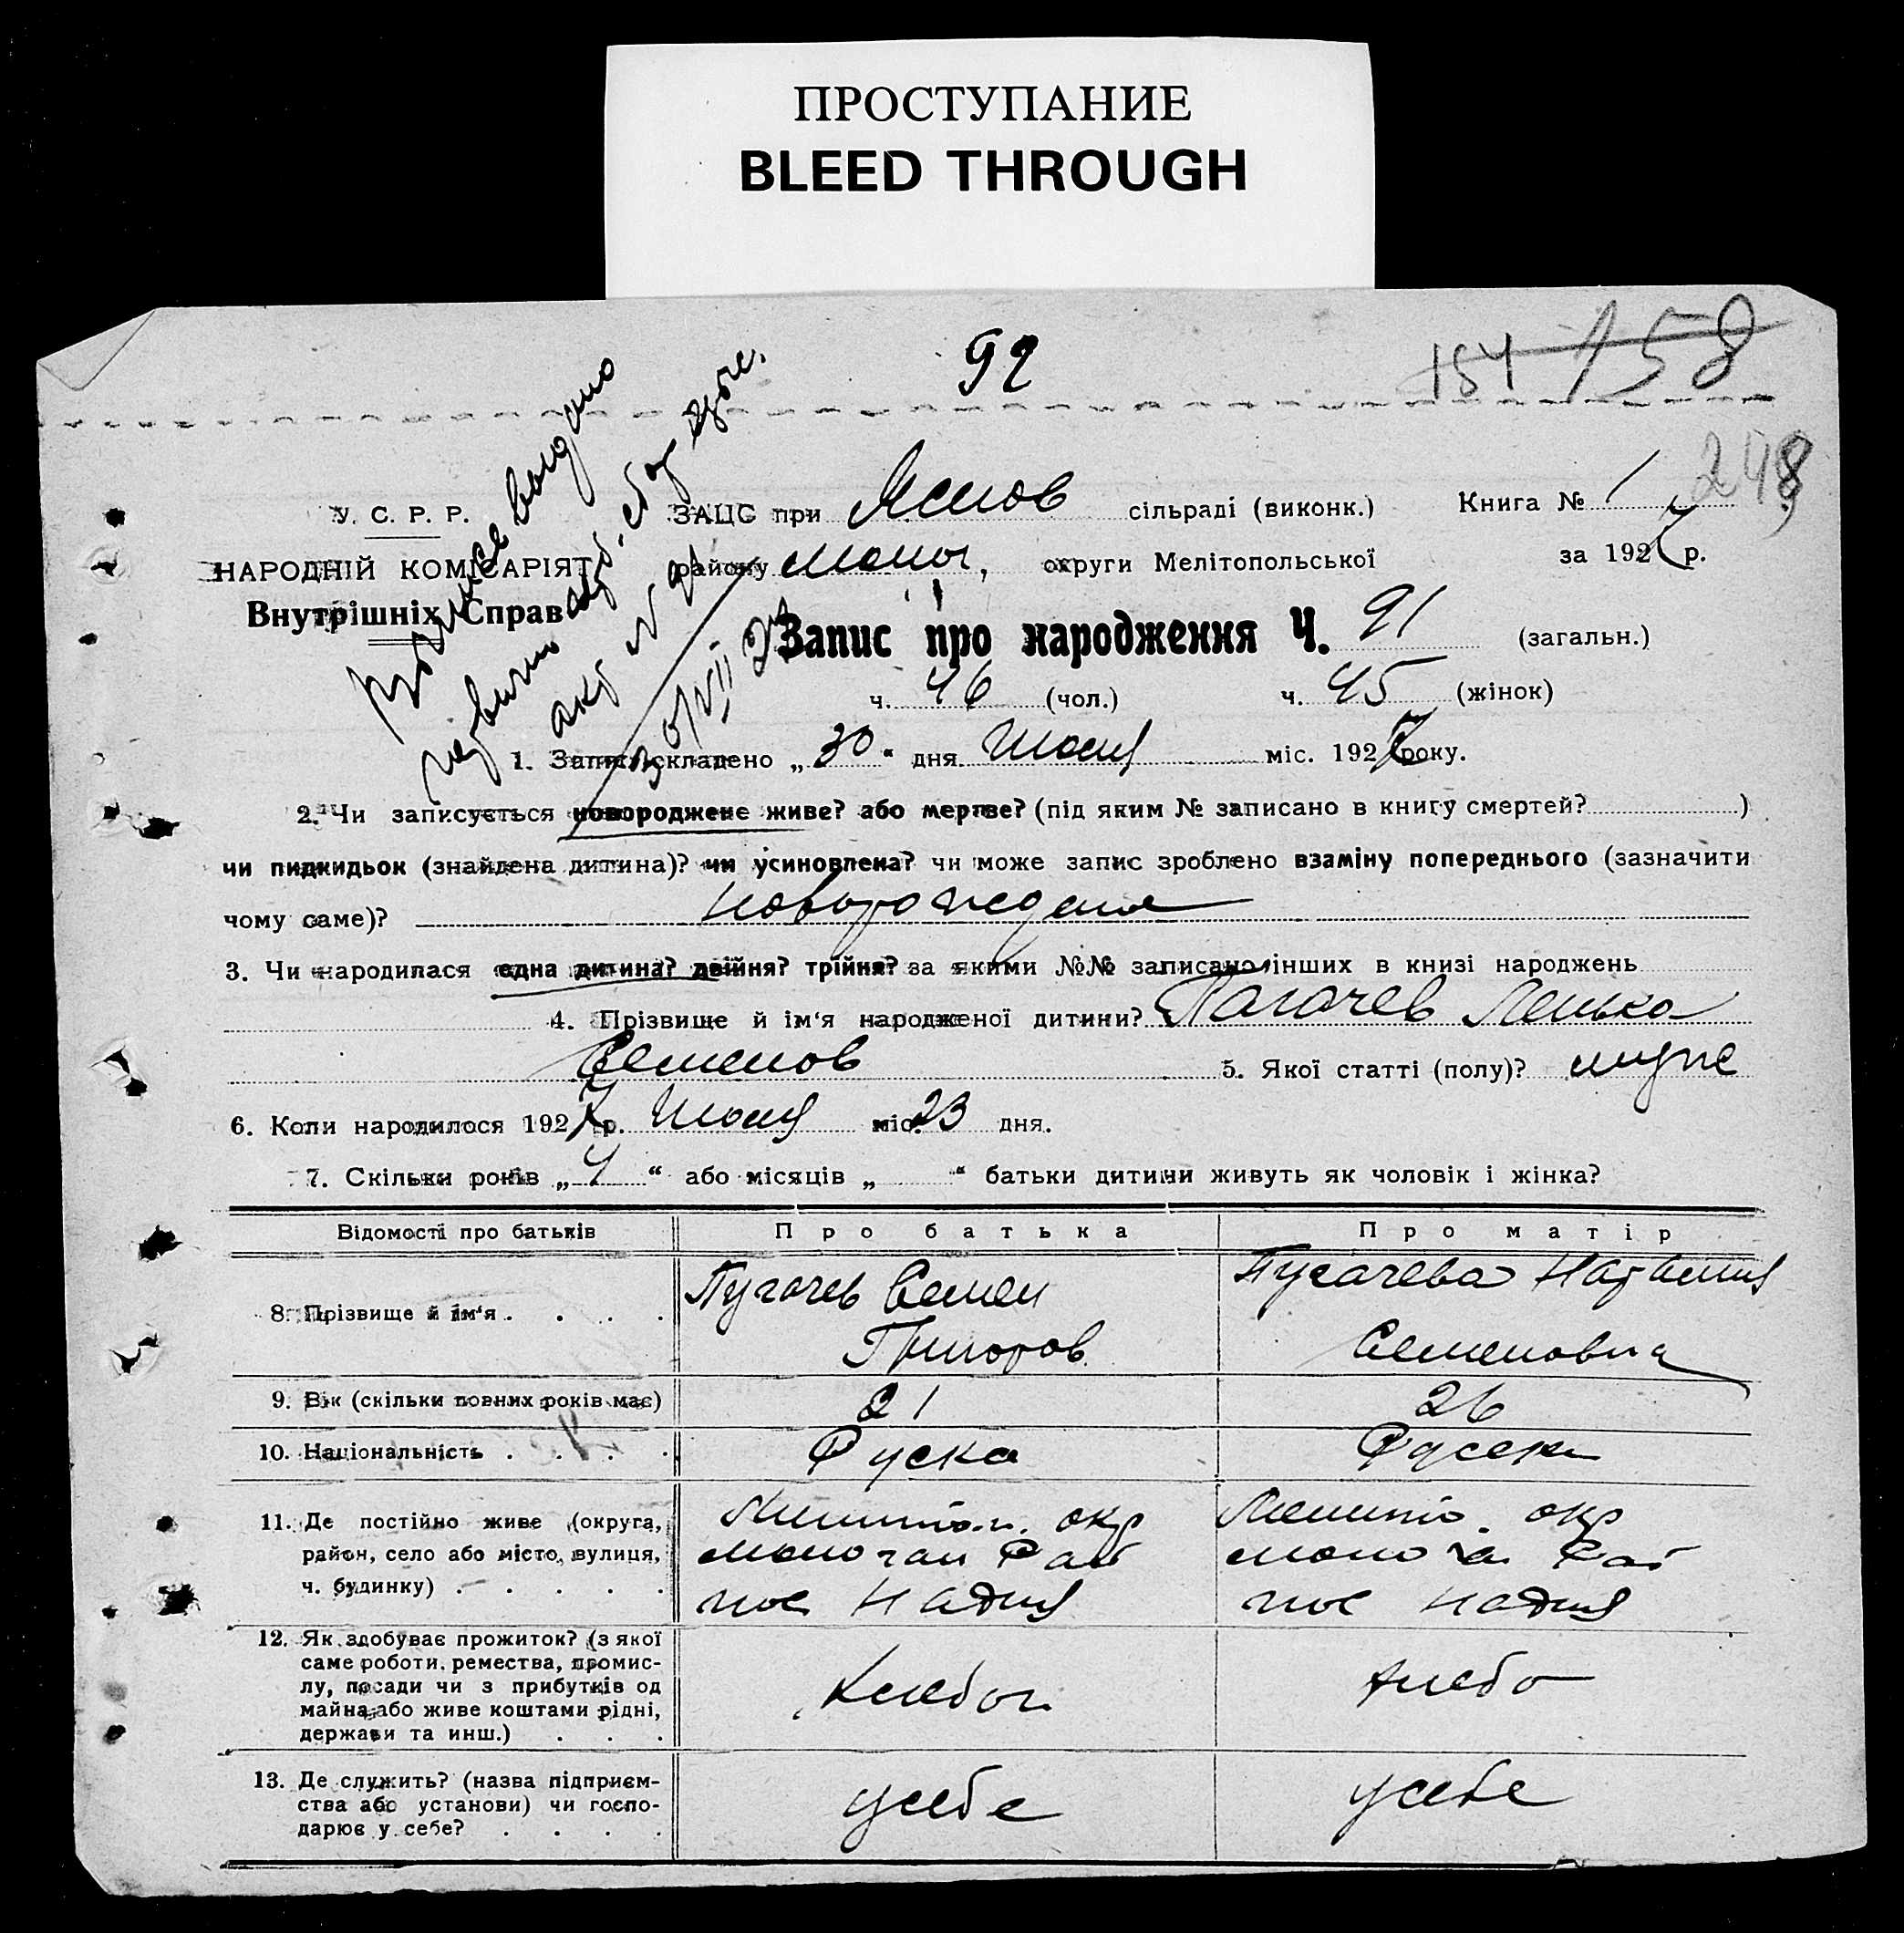 ПРОСТУПАНИЕ
BLEED THROUGH
92
154 158
248
У. С. Р. Р.
ЗАЦС при сільраді (виконк.) Книга № 1
НАРОДНІЙ КОМІСАРІЯТ
району Молоч, округи Мелітопольської за 1927 р.
Внутрішніх Справ
Запис про народження Ч. 91 (загальн.)
ч. 46 (чол.) ч. 45 (жінок)
1. Запис складено „30“ дня Июля міс. 1927 року.
2. Чи записується новороджене живе? або мертве? (під яким № записано в книгу смертей? )
чи пидкидьок (знайдена дитина)? чи усиновлена? чи може запис зроблено взаміну попереднього (зазначити
чому саме)?
3. Чи народилася одна дитина? двійня? трійня? за якими №№ записано інших в книзі народжень
4. Прізвище й ім‘я народженої дитини? Пагачев Ленька
Семенов 5. Якої статті (полу)? муже
6. Коли народилося 1927 р. Июля міс. 23 дня.
7. Скільки років „4“ або місяців „ “ батьки дитини живуть як чоловік і жінка?
Відомості про батьків Про батька Про матір
8. Прізвище й ім‘я . . . . Пугачев Семен Григоров Пугачева Наталия Семеновна
9. Вік (скільки повних років має) 21 26
10. Національність . . . . Руска
11. Де постійно живе (округа,
район, село або місто, вулиця,
ч. будинку) . . . . . Мелитоп. окр Молочан Рай пос Надия Мелито. окр Молоча Рай пос Надия
12. Як здобуває прожиток? (з якої
саме роботи, ремества, промис-
лу, посади чи з прибутків од
майна або живе коштами рідні,
держави та инш.) . . . Хлебоп Хлебо
13. Де служить? (назва підприєм-
ства або установи) чи госпо-
дарює у себе? . . . . усебе усебе